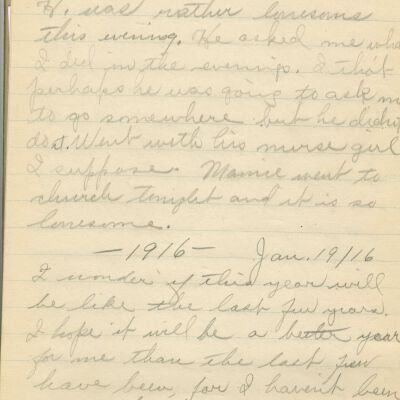 H. was rather lonesome
this evening. He asked me wha
I did in the evenings. I that
perhaps he was going to ask m
to go somewhere but he didn't
do it. Went with his nurse girl
I suppose. Mamie went to
church tonight and it is so
lonesome.
-1916- Jan. 19/16
I wonder if this year will
be like the last few years.
I hope it will be a better year
for me than the last few
have been, for I haven't been